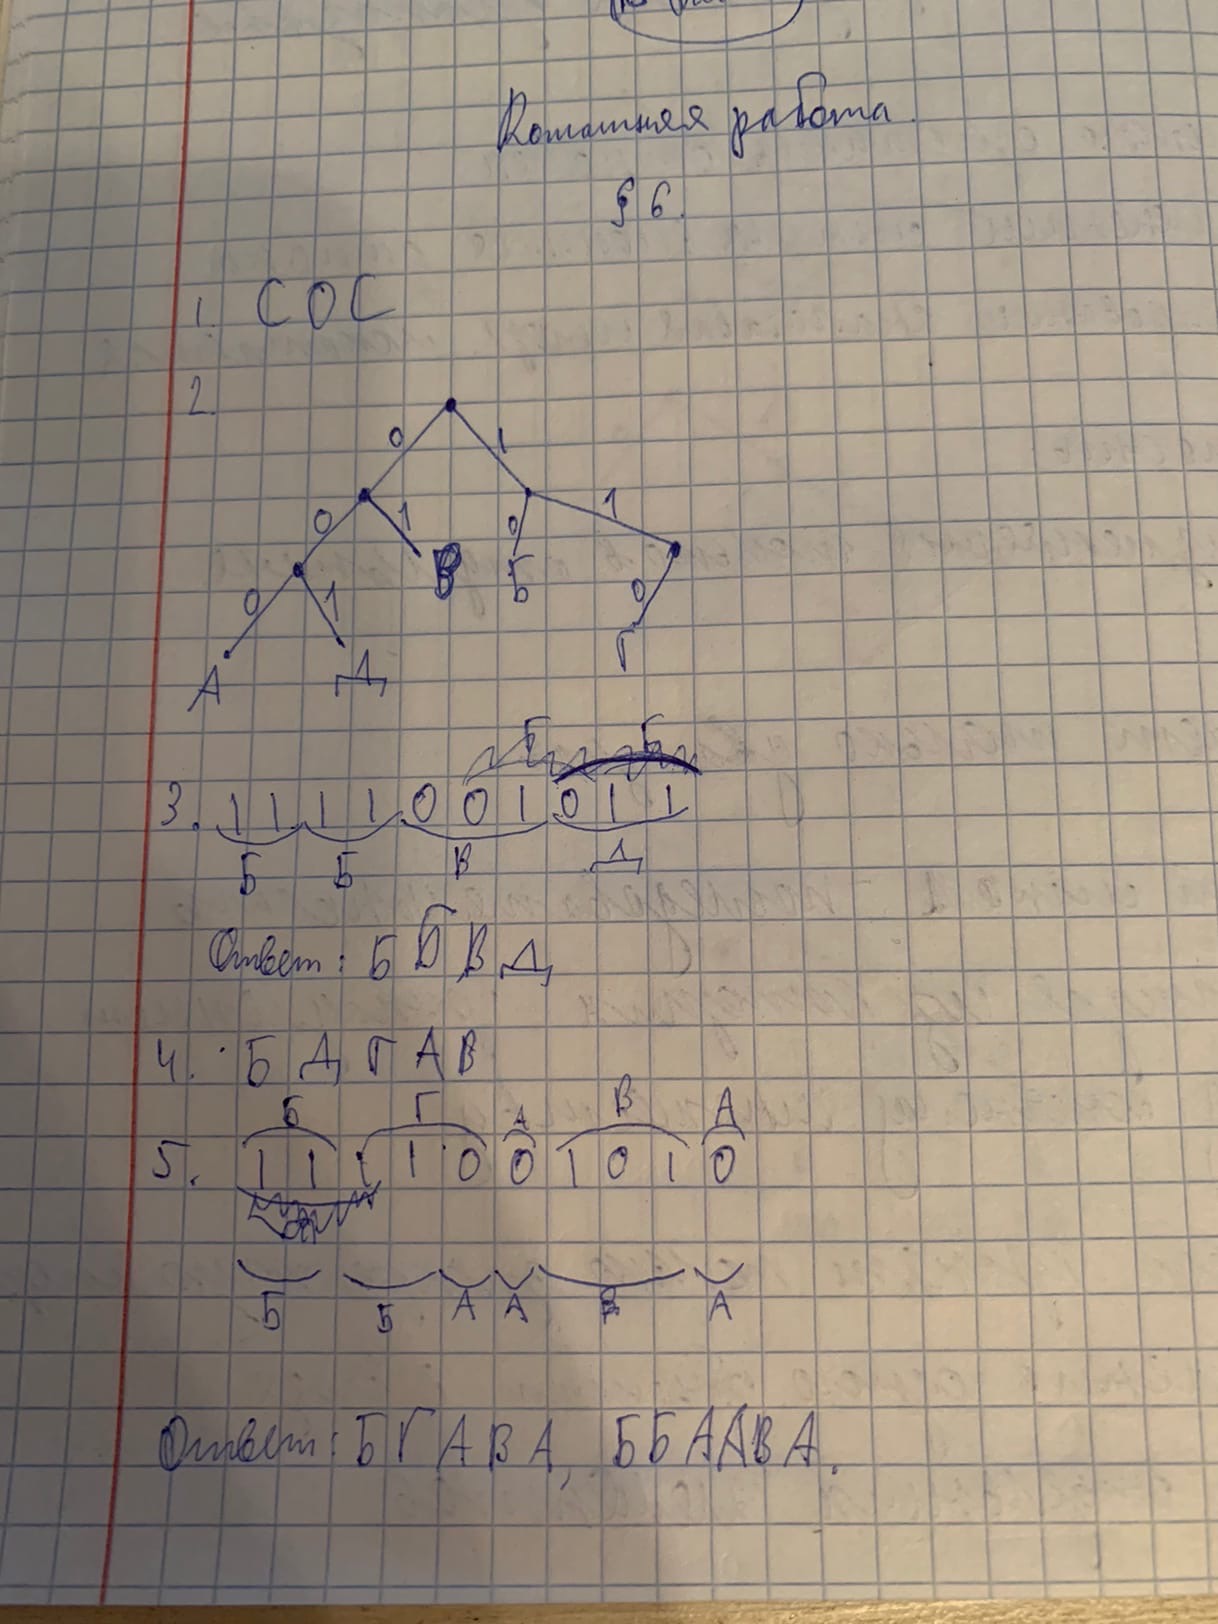 Домашняя работа.
§ 6.
1. СОС
2.
0 1
0 1 0 1
0 1 В Б 0
А Д Г
Б Б
3. 1 1 1 1 0 0 1 0 1 1
Б Б В Д
Ответ: Б Б В Д
4. Б Д Г А В
Б Г А В А
5. 1 1 1 1 0 0 1 0 1 0
Б Б А А В А
Ответ: Б Г А В А, Б Б А А В А.